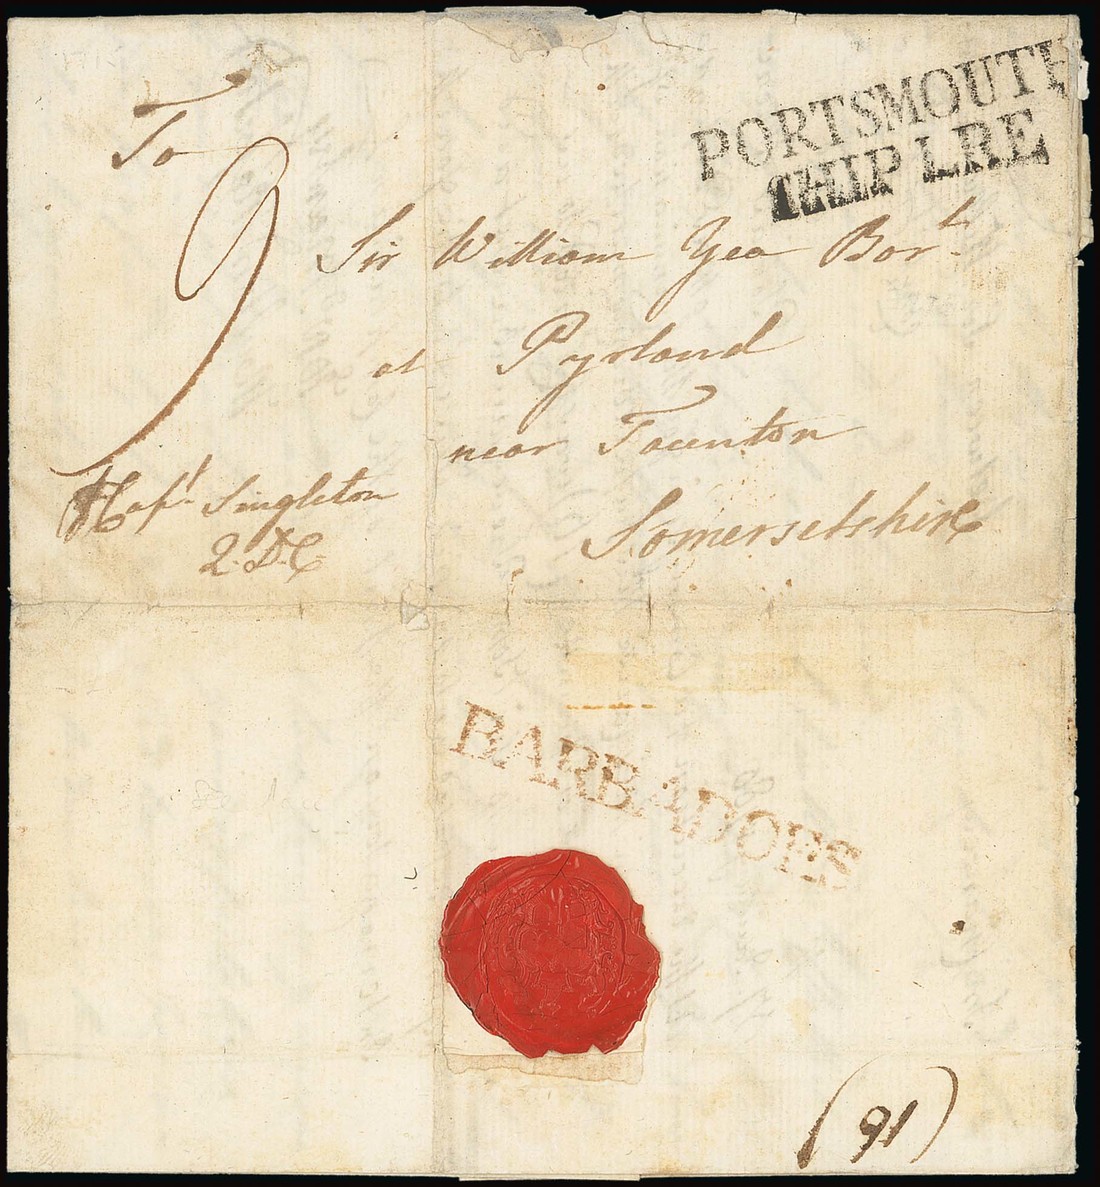 PORTSMOUTH
SHIP LRE
To
9
Sir William Yea Bart.
at Pyrland
near Taunton
Somersetshire
Capt. Singleton
BARBADOES
(91)